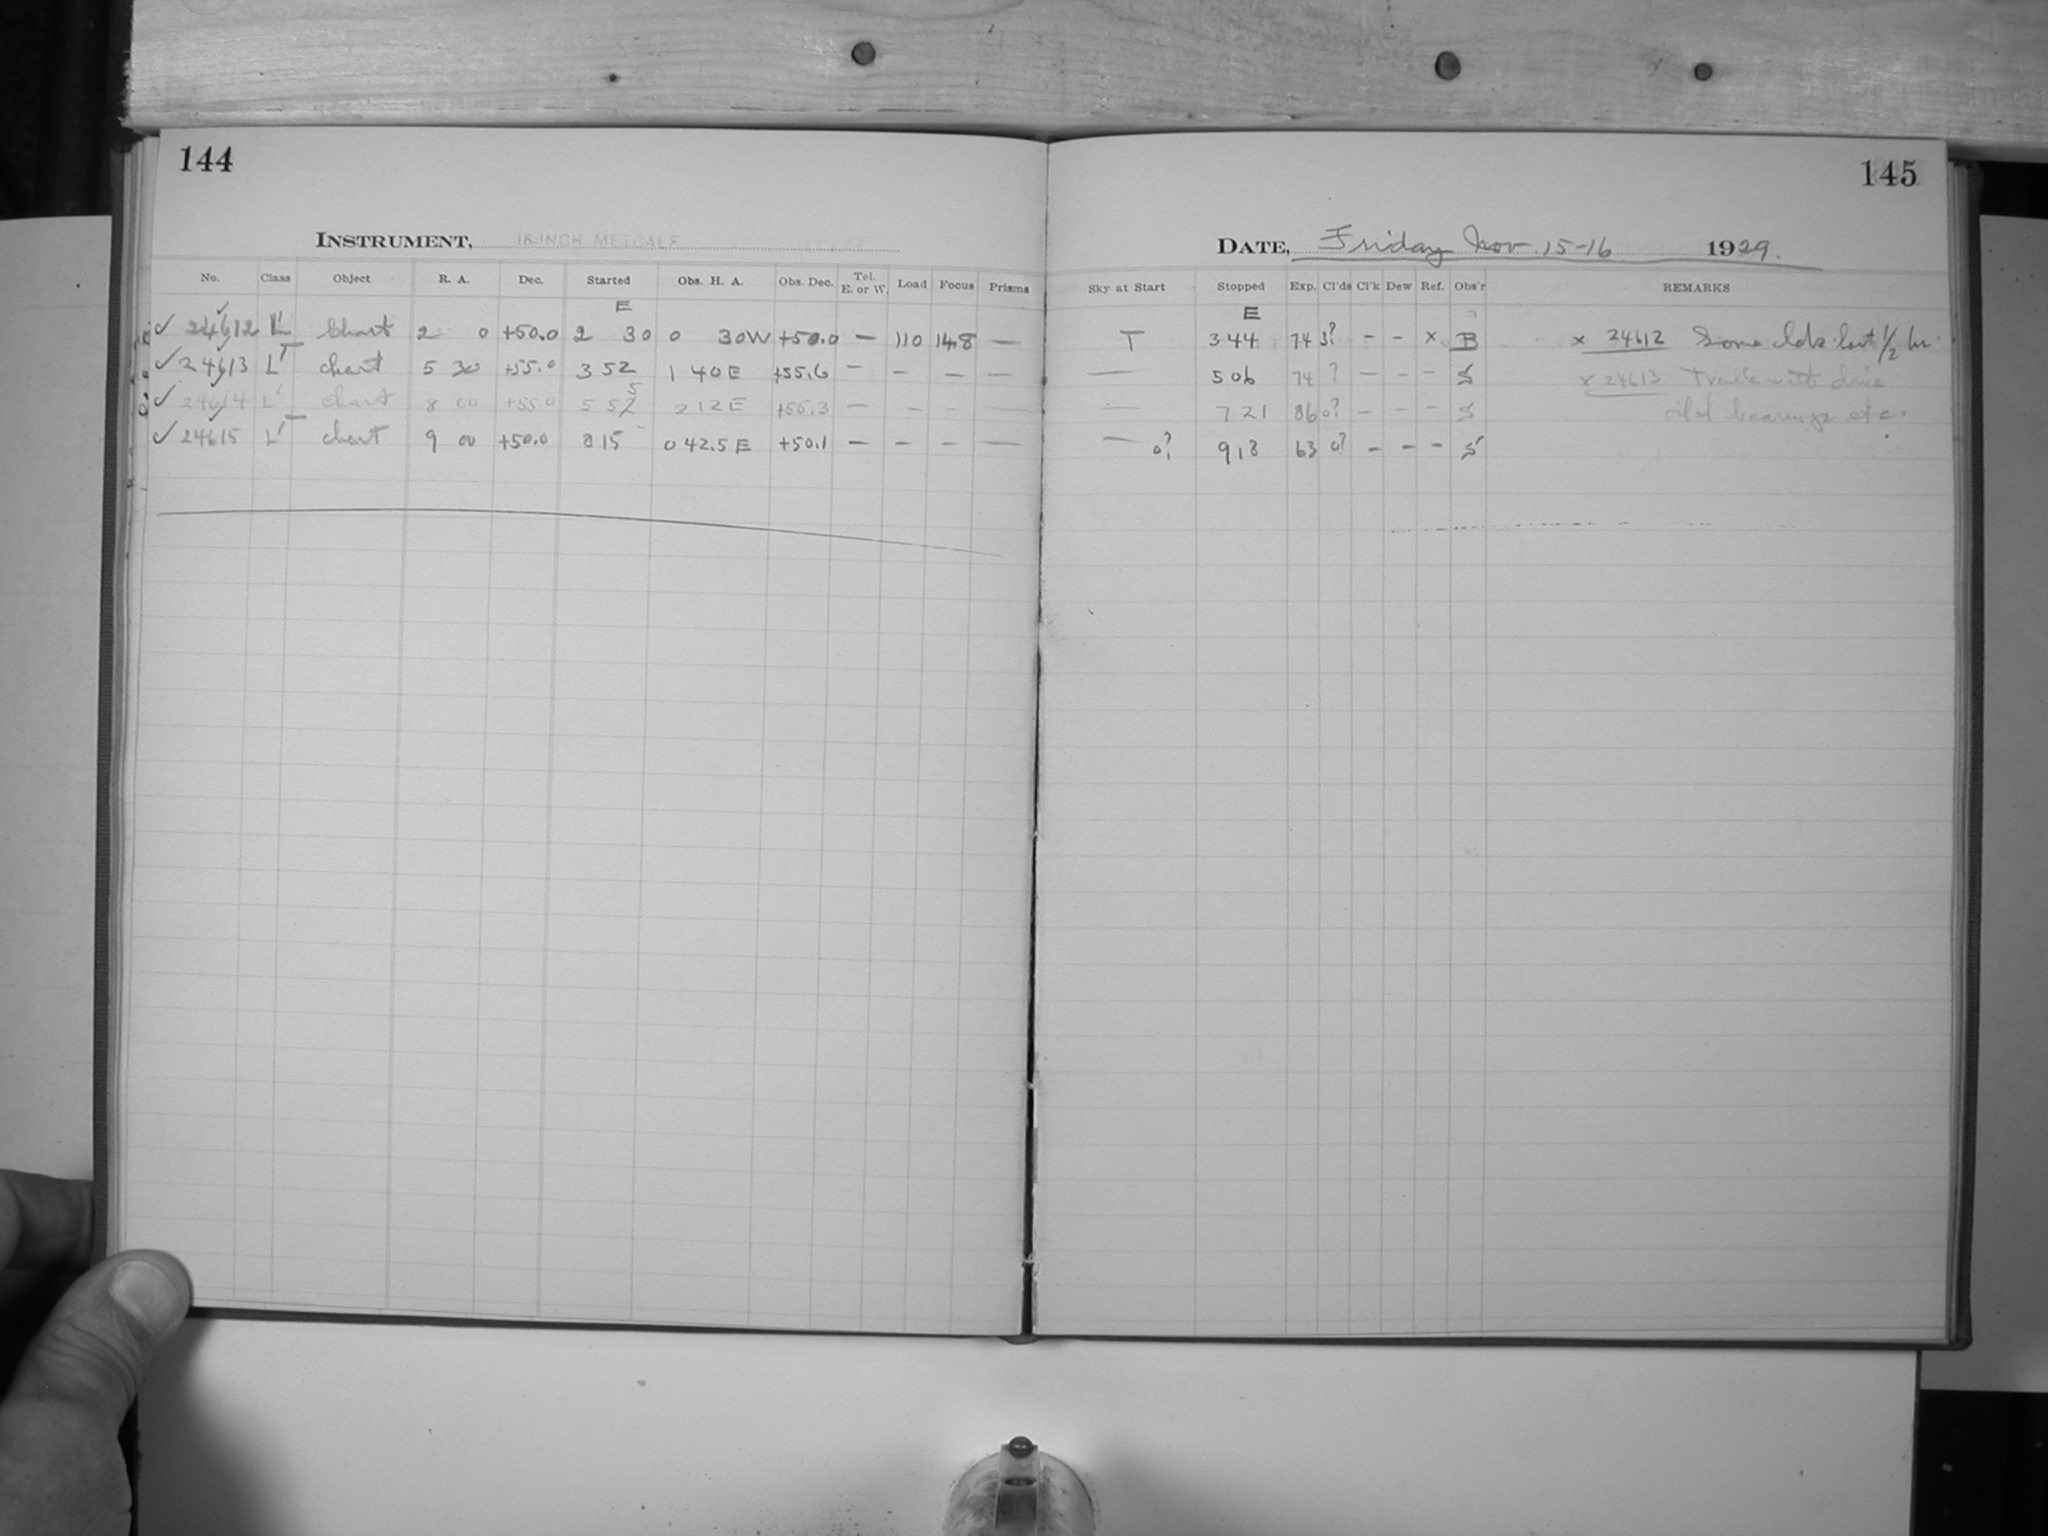 144
INSTRUMENT, 16-INCH METCALF
No. Class Object R. A. Dec. Started Obs. H. A. Obs. Dec. Tel. E. or W. Load Focus Prisms
E
✓ 24612 L' Chart 2 0 +50.0 2 30 0 30W +50.0 — 110 14.8 —
✓ 24613 L' chart 5 30 +55.0 3 52 1 40E +55.6 — — — —
✓ 24614 L' chart 8 00 +55.0 5 55 2 12E +55.3 — — — —
✓ 24615 L' chart 9 00 +50.0 8 15 0 42.5E +50.1 — — — —
145
DATE, Friday Nov. 15-16 1929.
Sky at Start Stopped Exp. Cl'ds Cl'k Dew Ref. Obs'r REMARKS
E
T 3 44 74 3? - - x B x 24612 Some clds last 1/2 hr.
— 5 06 74 ? — — - S x 24613 Trouble with drive
— 7 21 86 0? — - - S oiled bearings etc.
— 0? 9 18 63 0? - - - S